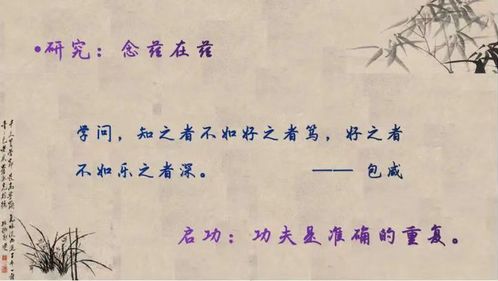 •研究：念兹在兹
学问，知之者不如好之者笃，好之者
不如乐之者深。 —— 包咸
启功：功夫是准确的重复。